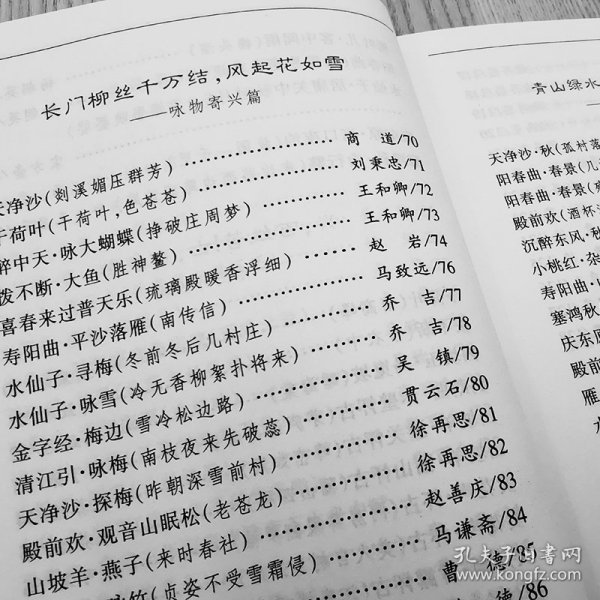 长门柳丝千万结,风起花如雪
——咏物寄兴篇
天净沙(剡溪媚压群芳)……商 道/70
干荷叶(干荷叶,色苍苍)……刘秉忠/71
醉中天·咏大蝴蝶(挣破庄周梦)……王和卿/72
拨不断·大鱼(胜神鳌)……王和卿/73
喜春来过普天乐(琉璃殿暖香浮细)……赵 岩/74
寿阳曲·平沙落雁(南传信)……马致远/76
水仙子·寻梅(冬前冬后几村庄)……乔 吉/77
水仙子·咏雪(冷无香柳絮扑将来)……乔 吉/78
金字经·梅边(雪冷松边路)……吴 镇/79
清江引·咏梅(南枝夜来先破蕊)……贯云石/80
天净沙·探梅(昨朝深雪前村)……徐再思/81
殿前欢·观音山眠松(老苍龙)……徐再思/82
山坡羊·燕子(来时春社)……赵善庆/83
竹(贞姿不受雪霜侵)……马谦斋/84
曹 德/85
德/86
青山绿水
天净沙·秋(孤村落
阳春曲·春景(几
阳春曲·春景(
殿前欢(酒杯
沉醉东风·秋
小桃红·杂
寿阳曲·
塞鸿秋
庆东原
殿前
雁
孔夫子旧书网
www.kongfz.com